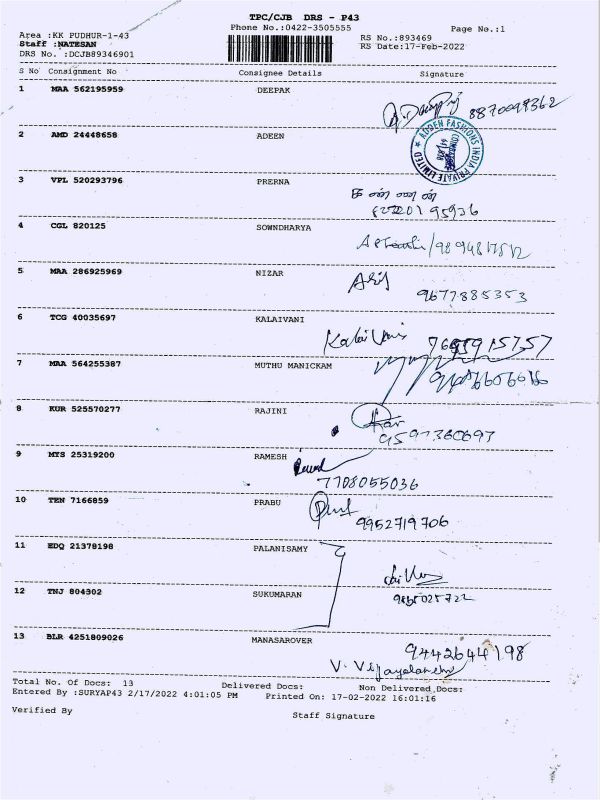 TPC/CJB DRS - P43
Phone No.:0422-3505555
Page No.:1
Area :KK PUDHUR-1-43
Staff :NATESAN
DRS No. :DCJB89346901
RS No.:893469
RS Date:17-Feb-2022
S No Consignment No Consignee Details Signature
1 MAA 562195959 DEEPAK
8870098362
2 AMD 24448658 ADEEN
ADDEN FASHIONS INDIA PRIVATE LIMITED
3 VPL 520293796 PRERNA
4 CGL 820125 SOWNDHARYA
5 MAA 286925969 NIZAR
9677885353
6 TCG 40035697 KALAIVANI
Kalaivani
7 MAA 564255387 MUTHU MANICKAM
8 KUR 525570277 RAJINI
9597360697
9 MTS 25319200 RAMESH
7708055036
10 TEN 7166859 PRABU
9952719706
11 EDQ 21378198 PALANISAMY
12 TNJ 804302 SUKUMARAN
13 BLR 4251809026 MANASAROVER
9442644198
Total No. Of Docs: 13 Delivered Docs: Non Delivered Docs:
Entered By :SURYAP43 2/17/2022 4:01:05 PM Printed On: 17-02-2022 16:01:16
Verified By
Staff Signature